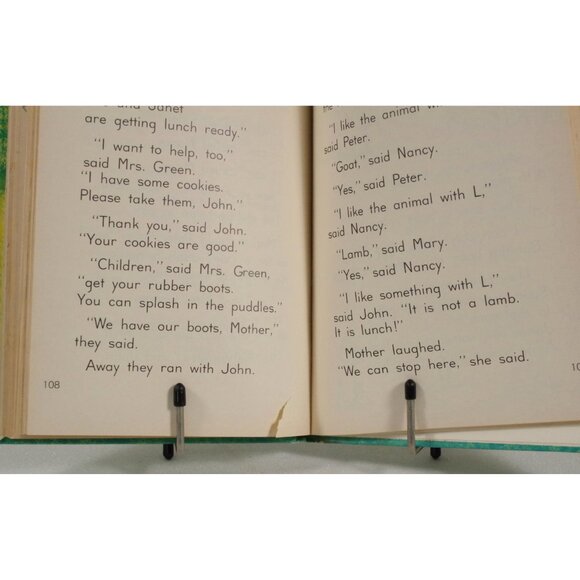 and Janet
are getting lunch ready."
"I want to help, too,"
said Mrs. Green.
"I have some cookies.
Please take them, John."
"Thank you," said John.
"Your cookies are good."
"Children," said Mrs. Green,
"get your rubber boots.
You can splash in the puddles."
"We have our boots, Mother,"
they said.
Away they ran with John.
108
"I like the animal with
said Peter.
"Goat," said Nancy.
"Yes," said Peter.
"I like the animal with L,"
said Nancy.
"Lamb," said Mary.
"Yes," said Nancy.
"I like something with L,"
said John. "It is not a lamb.
It is lunch!"
Mother laughed.
"We can stop here," she said.